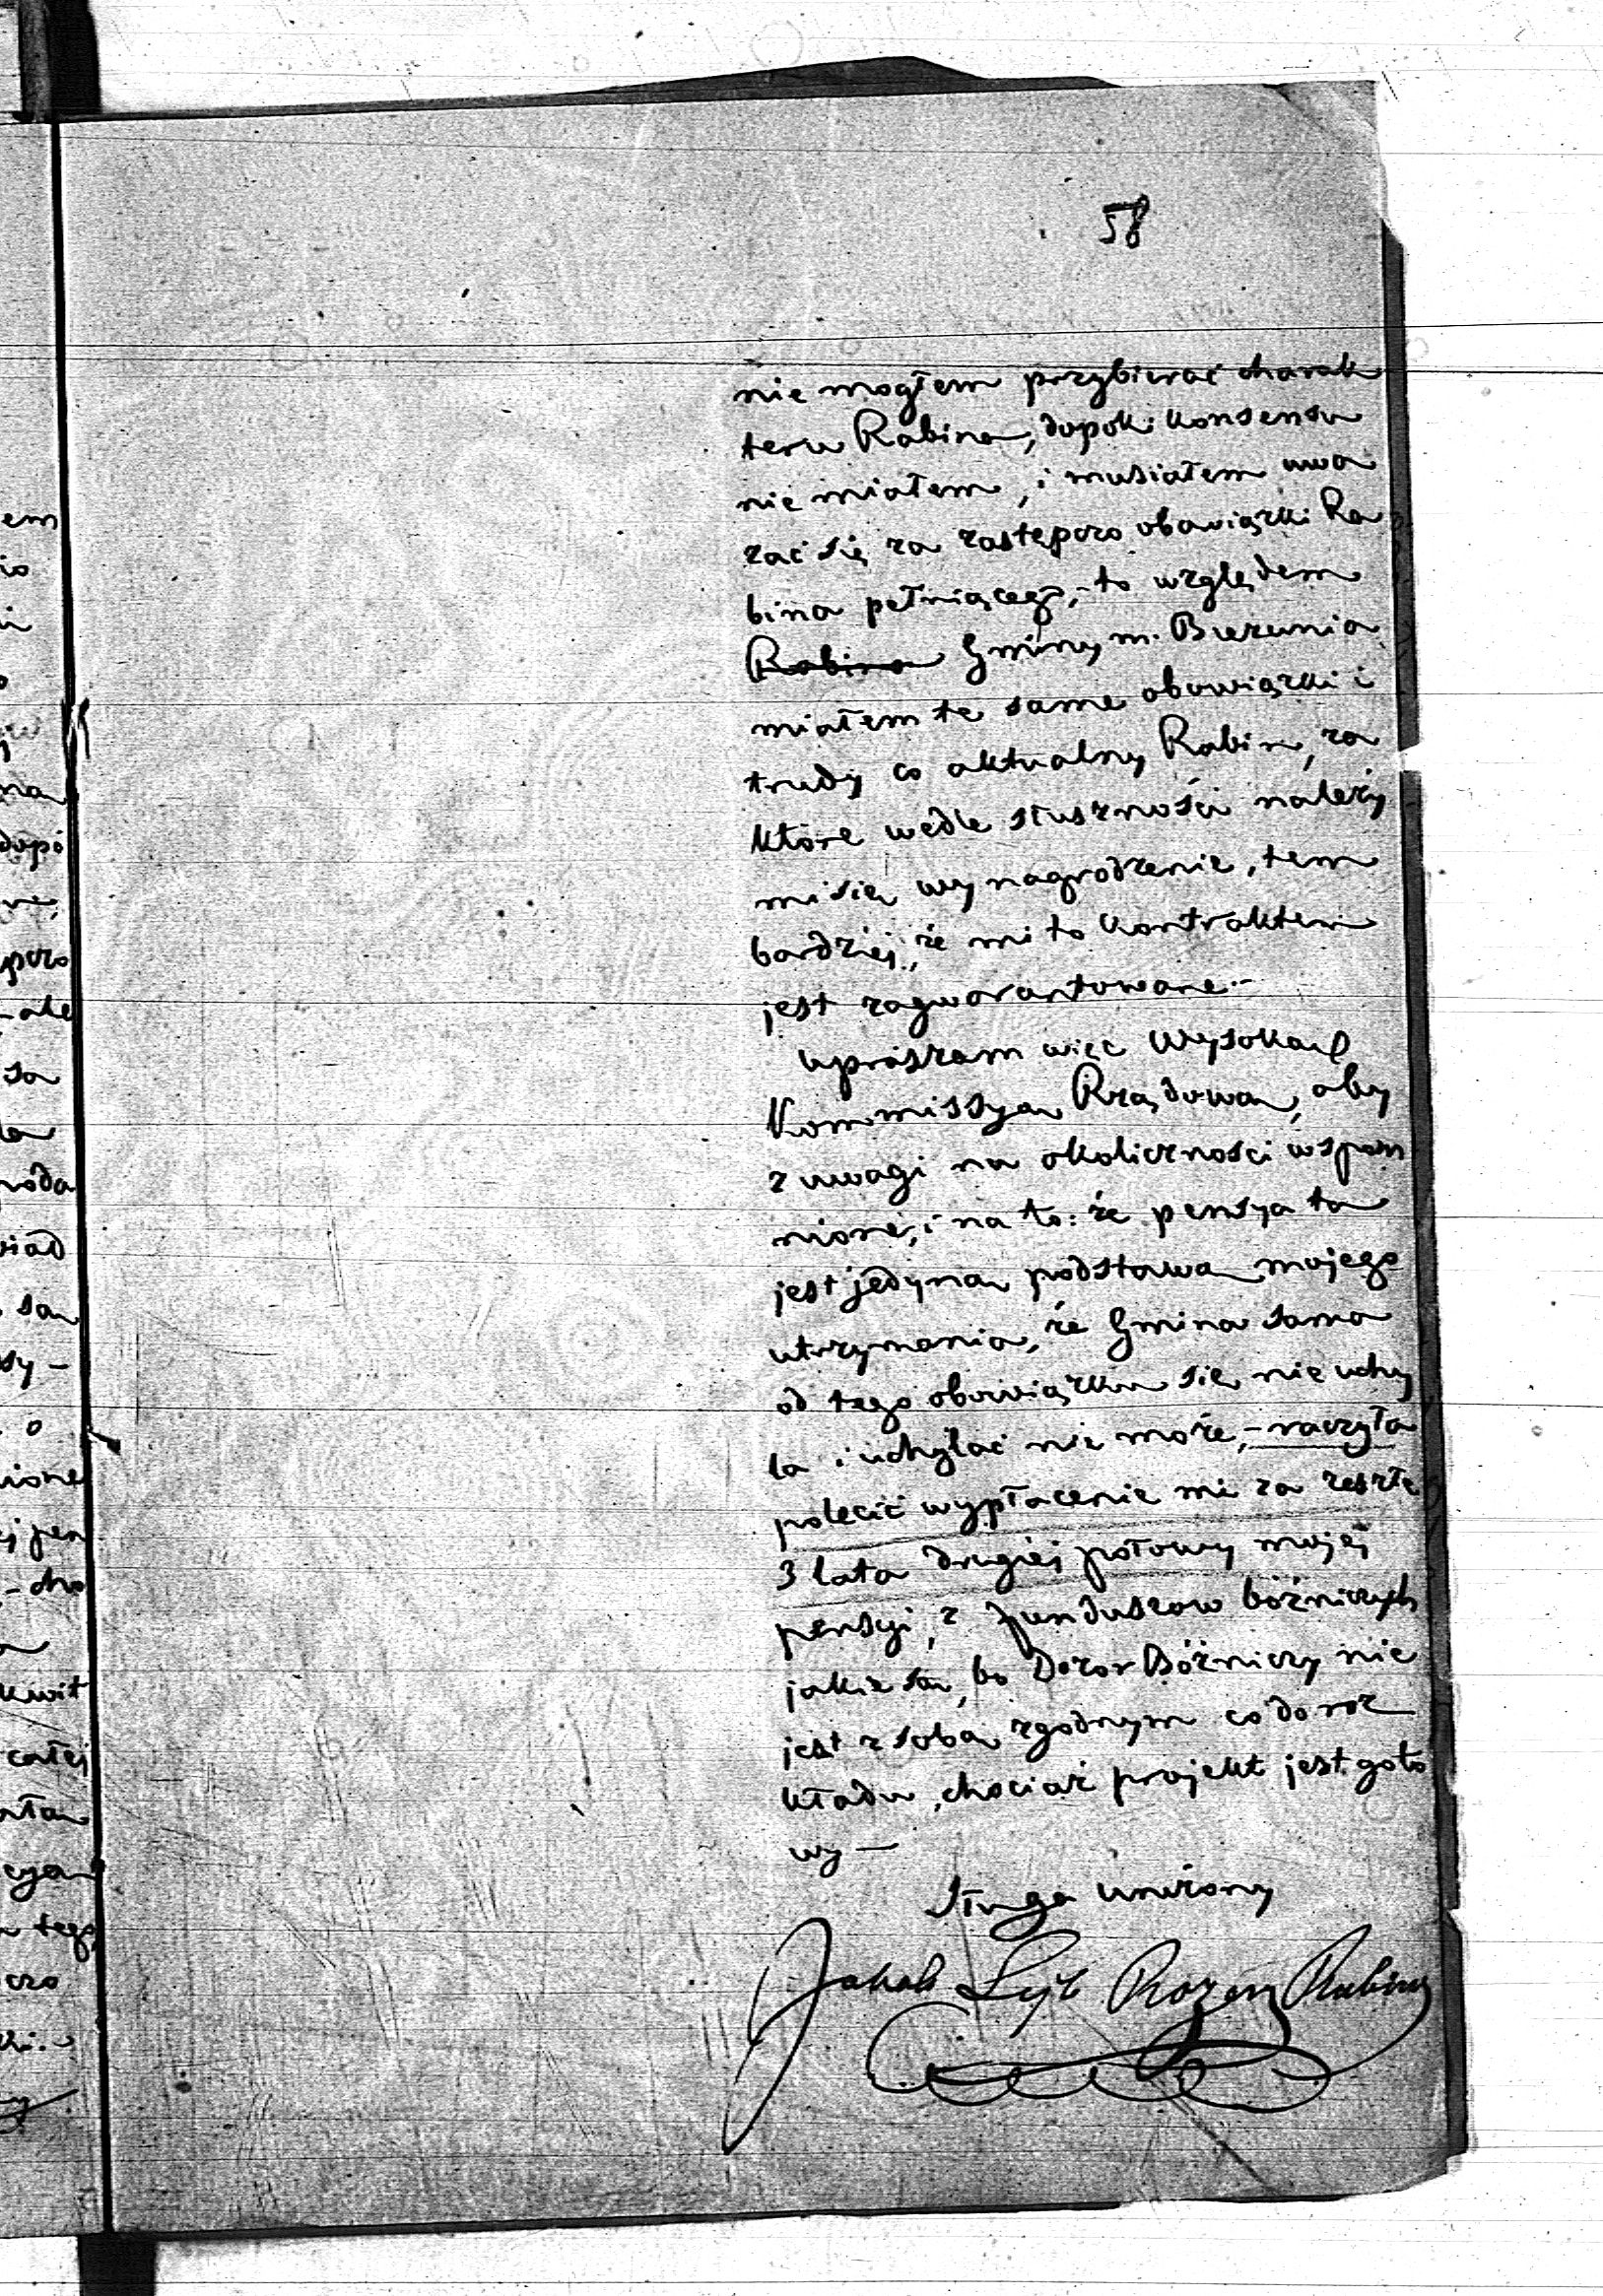 58
nie mogłem przybierać charak
teru Rabina, dopoki konsensu
nie miałem, i musiałem uwa
zać się za zastępczo obowiązki Ra
bina pełniącego, - to względem
Rabina Gminy m. Biezunia
miałem te same obowiązki i
trudy co aktualny Rabin, za
które wedle słuszności należy
mi się wynagrodzenie, tem
bardziej, że mi to kontraktem
jest zagwarantowane. -
Upraszam więc Wysokąś
Kommissyą Rządową, aby
z uwagi na okoliczności wspom
nione, i na to: że pensya ta
jest jedyną podstawą mojego
utrzymania, że Gmina sama
od tego obowiązku się nie uchy
la i uchylać nie może, - raczyła
polecić wypłacenie mi za zeszłe
3 lata drugiej połowy mojej
pensyi, z funduszow bóźniczych
jakie są, bo Dozor Bóźniczy nie
jest z sobą zgodnym co do roz
kładu, chociaż projekt jest goto
wy —
Sługa uniżony
Jakob Lejb Rozen Rabin
em
io
na
dopó
pczo
-ale
są
viad
są
sy -
o
nione
j pen
- cho
kwit
całej
cyą
tego
czo